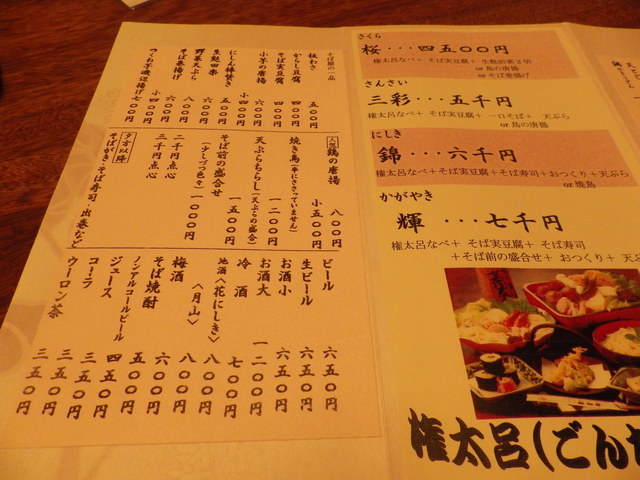 そば屋の一品
板わさ 五〇〇円
からし豆腐
そば実豆腐
小芋の唐揚 六〇〇円
にしん棒煮き
生麩田楽
野菜天ぷら
そば巻揚げ 六〇〇円
つくね芋磯辺揚げ 七〇〇円
小 四〇〇円
人気 鶏の唐揚 八〇〇円
小 五〇〇円
焼き鳥(串にささっていません)
天ぷらちらし(天ぷらの盛合) 一二〇〇円
そば前の盛合せ 一五〇〇円
(少しづつ色々)
二千円点心
三千円点心
夕方以降
そばがき・そば寿司・出巻など
ビール 六五〇円
生ビール 六五〇円
お酒小 六五〇円
お酒大 一二〇〇円
冷酒 七〇〇円
地酒〈花にしき〉 八〇〇円
〈月山〉 八〇〇円
梅酒 六〇〇円
そば焼酎 五〇〇円
ノンアルコールビール 四五〇円
ジュース 三五〇円
コーラ 三五〇円
ウーロン茶 三五〇円
さくら
桜・・・四五〇〇円
権太呂なべ+ そば実豆腐+ 生麩的煮2切
or 鳥の唐揚
or そば巻揚げ
さんさい
三彩・・・五千円
権太呂なべ+ そば実豆腐+ 一口そば + 天ぷら
or 鳥の唐揚
にしき
錦・・・六千円
権太呂なべ+そば実豆腐+そば寿司+おつくり+ 天ぷら
or 焼鳥
かがやき
輝・・・七千円
権太呂なべ+ そば実豆腐+ そば寿司
+そば前の盛合せ+ おつくり+ 天ぷ
権太呂(ごん